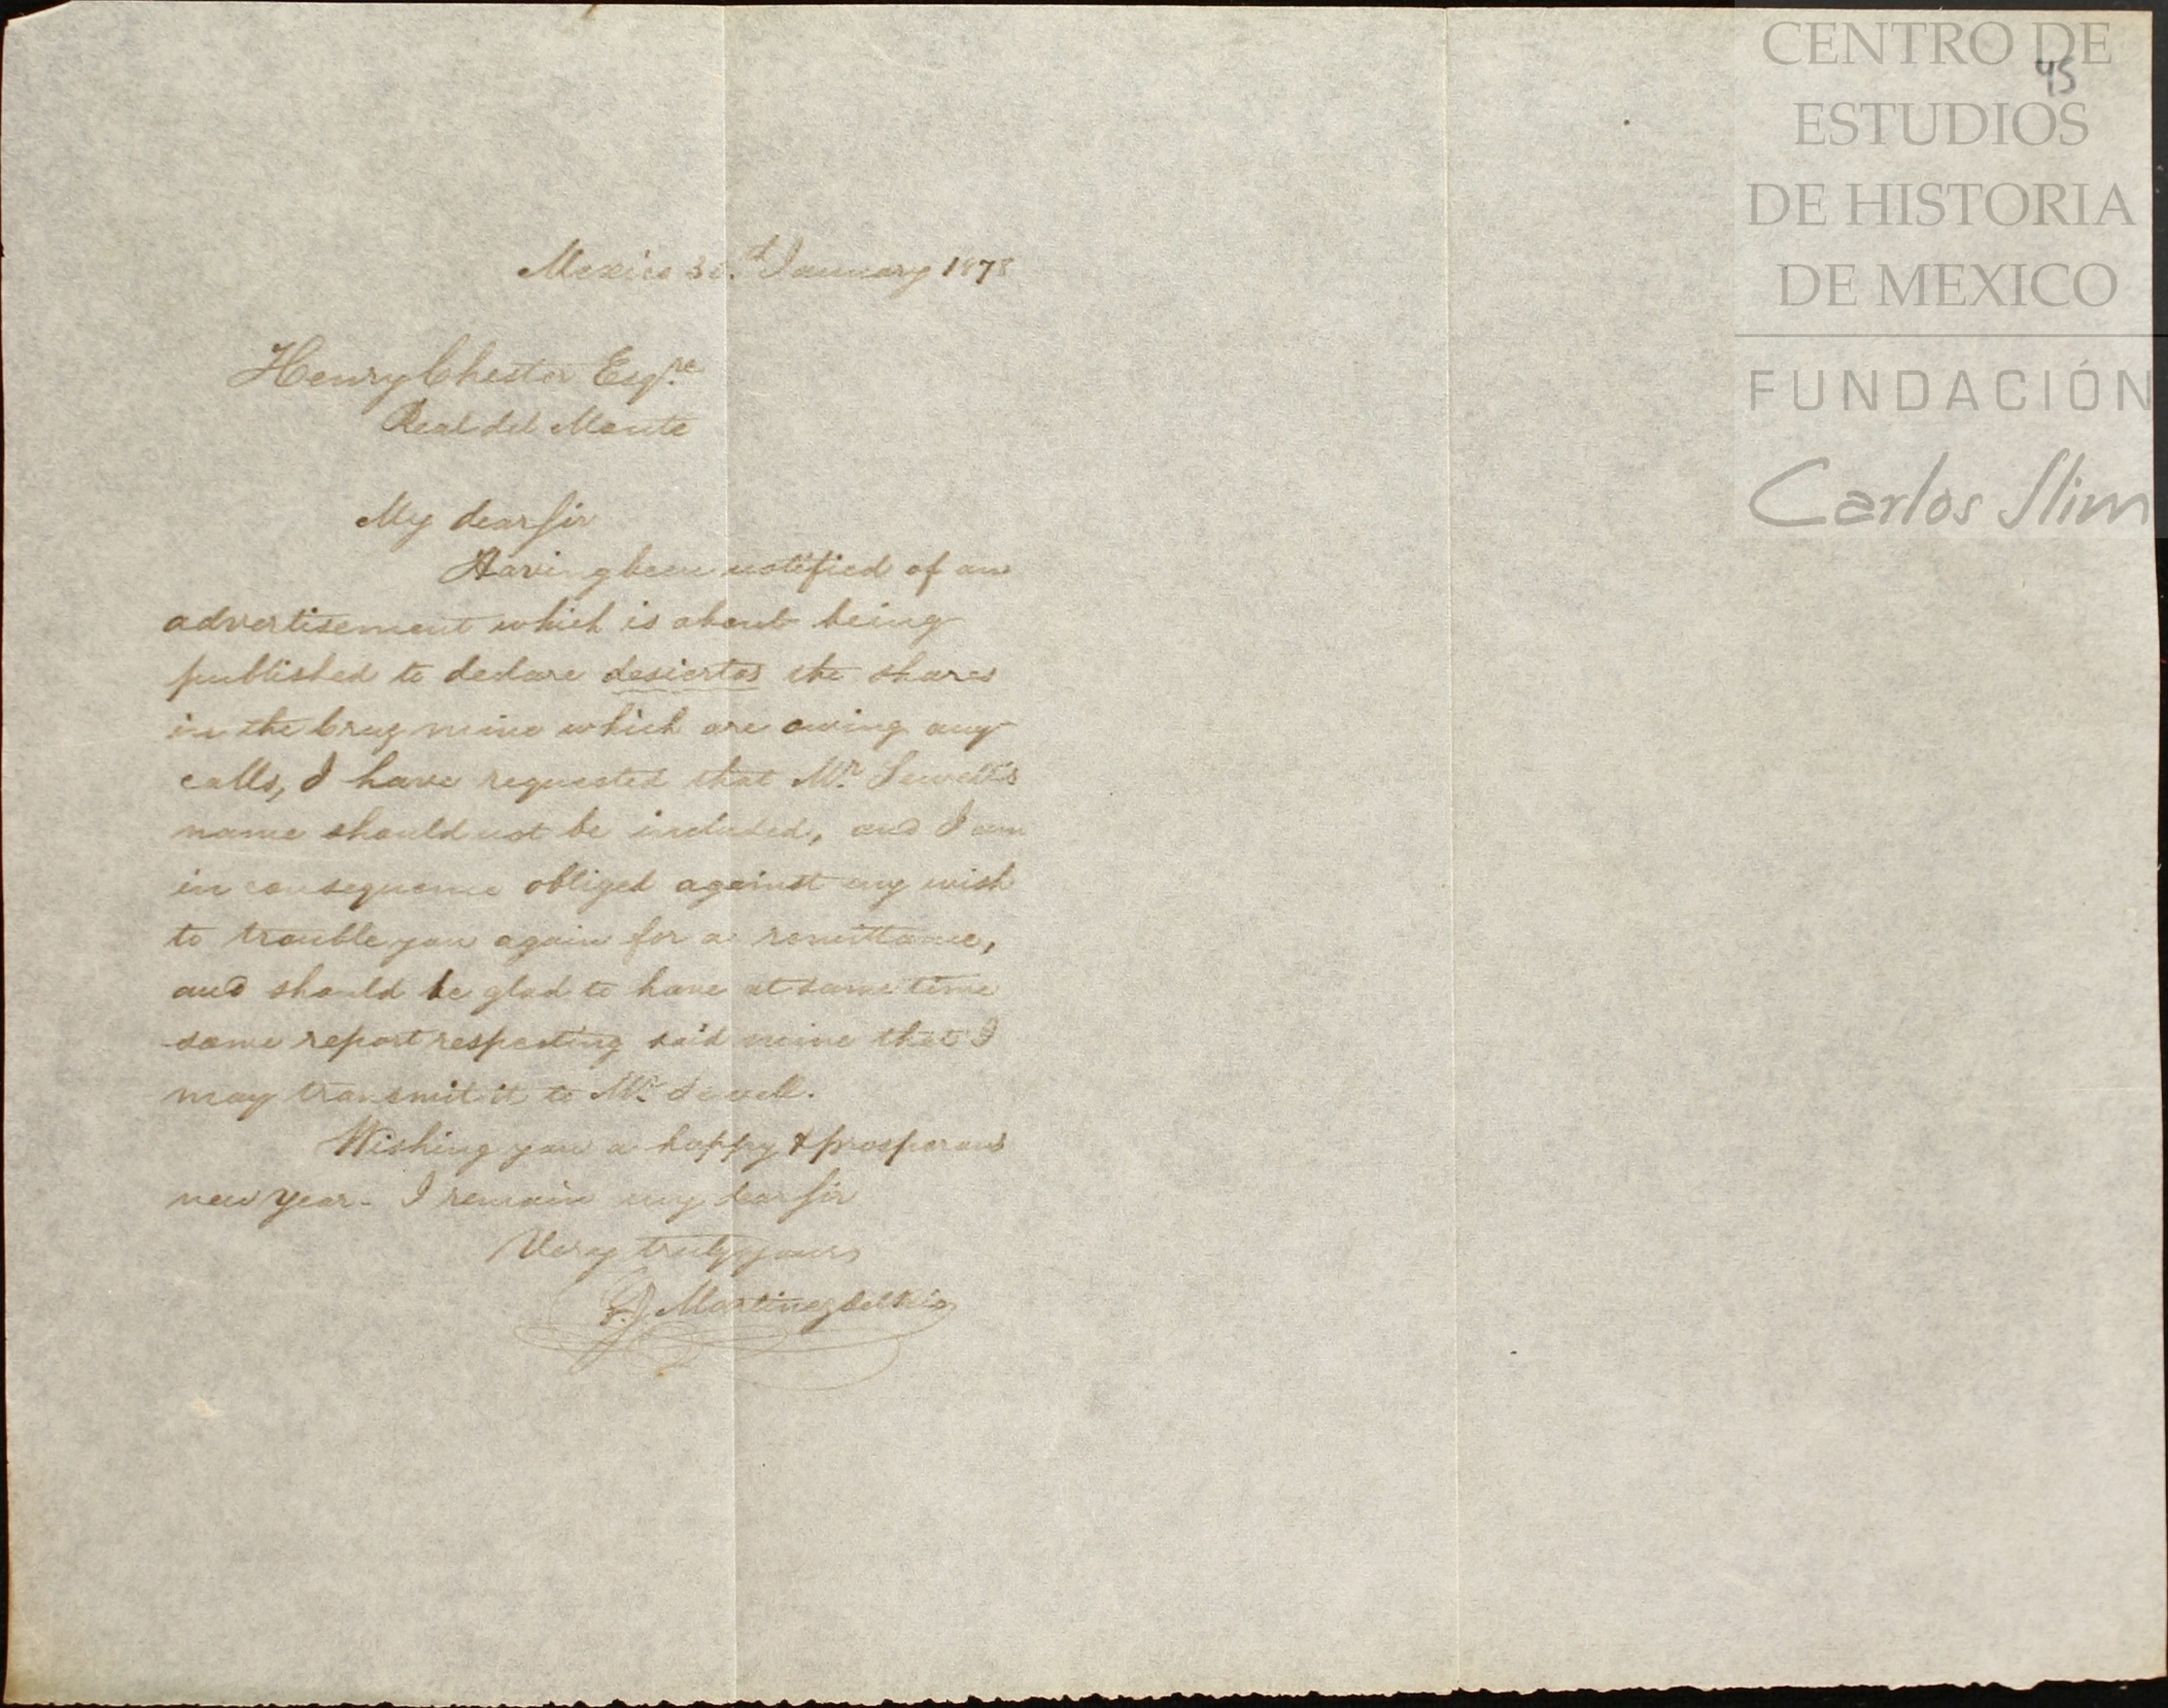 CENTRO DE
ESTUDIOS
DE HISTORIA
DE MEXICO
FUNDACIÓN
Carlos Slim
45
Mexico 30.th January 1878
Henry Chester Esqre
Real del Monte
My dear Sir
Having been notified of an
advertisement which is about being
published to declare desiertas the shares
in the Cruz mine which are owing any
calls, I have requested that Mr. Sewell's
name should not be included, and I am
in consequence obliged against my wish
to trouble you again for a remittance,
and should be glad to have at same time
some report respecting said mine that I
may transmit it to Mr. Sewell.
Wishing you a happy & prosperous
new year - I remain my dear Sir
Very truly yours
Martinez del Rio